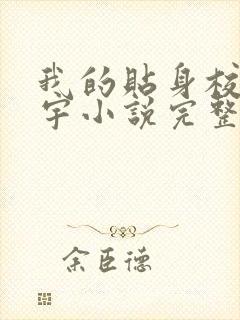 我的貼身校
宇小說完整
余臣德